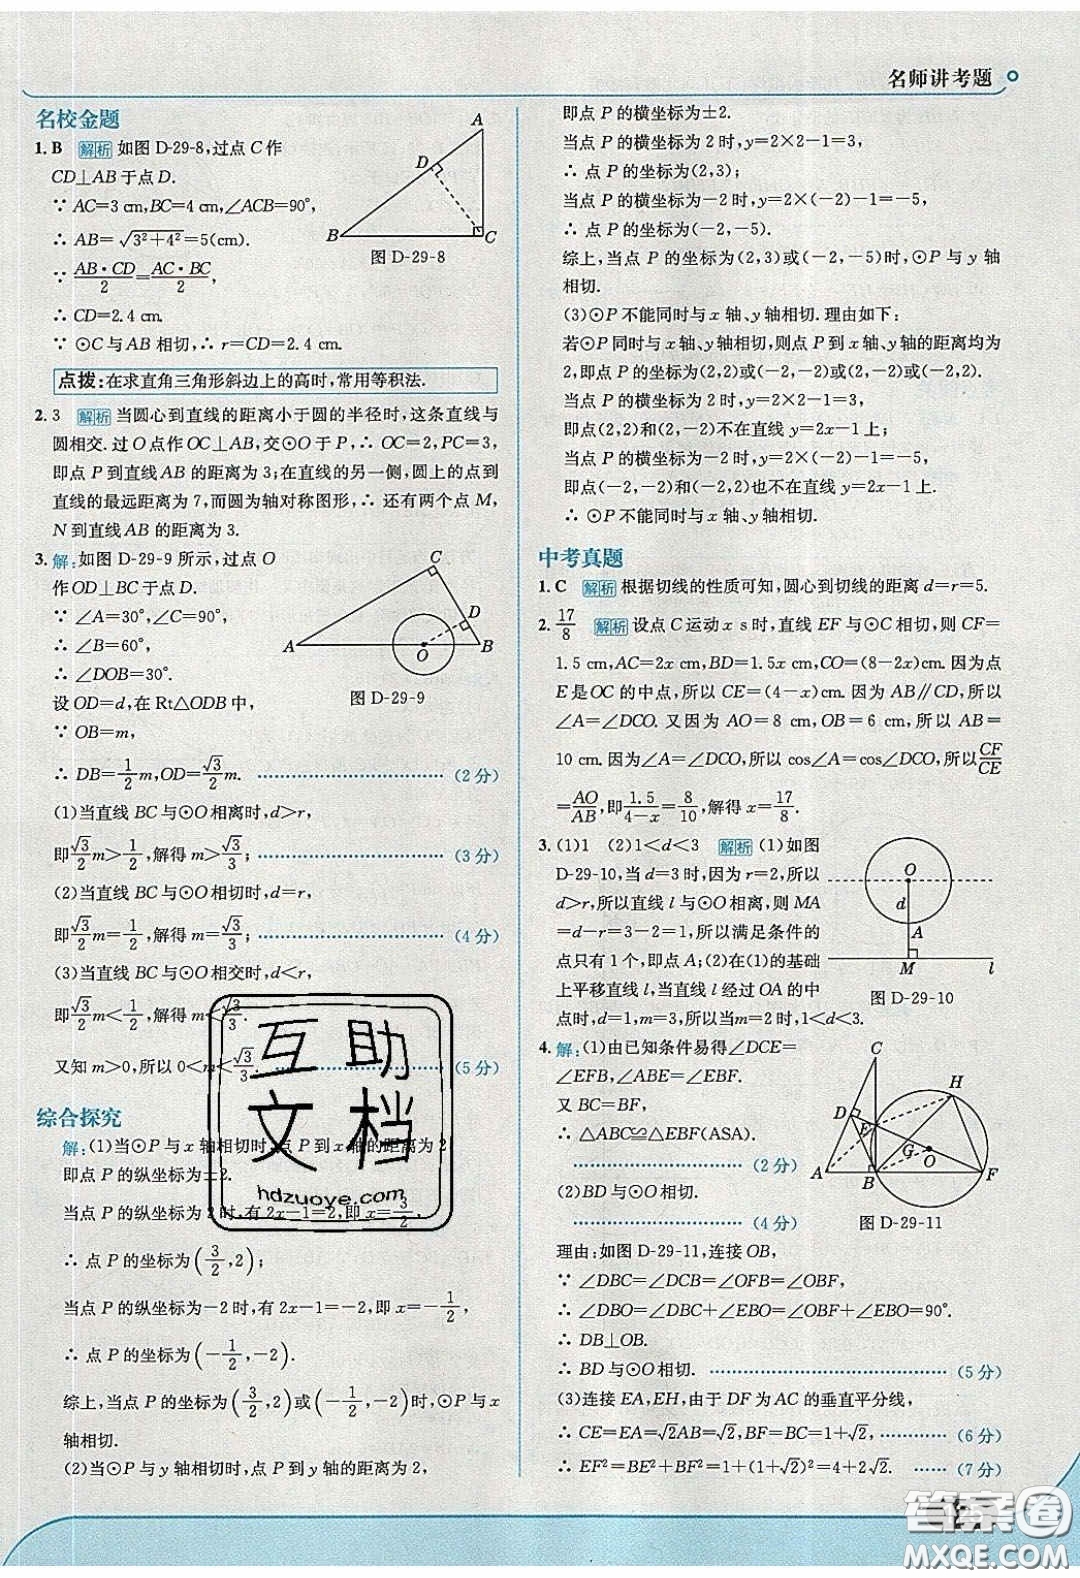 名师讲考题
名校金题
1. B 解析 如图 D-29-8,过点 C 作
CD⊥AB 于点 D.
∵ AC=3 cm,BC=4 cm,∠ACB=90°,
∴ AB=√(3²+4²)=5(cm).
∵ AB·CD/2=AC·BC/2,
∴ CD=2.4 cm.
∵ ⊙C 与 AB 相切,∴ r=CD=2.4 cm.
A
D
B
C
图 D-29-8
点拨:在求直角三角形斜边上的高时,常用等积法.
2. 3 解析 当圆心到直线的距离小于圆的半径时,这条直线与
圆相交.过 O 点作 OC⊥AB,交⊙O 于 P,∴ OC=2,PC=3,
即点 P 到直线 AB 的距离为 3;在直线的另一侧,圆上的点到
直线的最远距离为 7,而圆为轴对称图形,∴ 还有两个点 M,
N 到直线 AB 的距离为 3.
3. 解:如图 D-29-9 所示,过点 O
作 OD⊥BC 于点 D.
∵ ∠A=30°,∠C=90°,
∴ ∠B=60°,
∴ ∠DOB=30°.
设 OD=d,在 Rt△ODB 中,
∵ OB=m,
∴ DB=1/2m,OD=√3/2m. (2 分)
C
D
A
O
B
图 D-29-9
(1)当直线 BC 与⊙O 相离时,d>r,
即√3/2m>1/2,解得 m>√3/3; (3 分)
(2)当直线 BC 与⊙O 相切时,d=r,
即√3/2m=1/2,解得 m=√3/3; (4 分)
(3)当直线 BC 与⊙O 相交时,d<r,
即√3/2m<1/2,解得 m<√3/3.
又知 m>0,所以 0<m<√3/3. (5 分)
综合探究
解:(1)当⊙P 与 x 轴相切时,点 P 到 x 轴的距离为 2,
即点 P 的纵坐标为±2.
当点 P 的纵坐标为 2 时,有 2x-1=2,即 x=3/2,
∴ 点 P 的坐标为(3/2,2);
当点 P 的纵坐标为-2 时,有 2x-1=-2,即 x=-1/2,
∴ 点 P 的坐标为(-1/2,-2).
综上,当点 P 的坐标为(3/2,2)或(-1/2,-2)时,⊙P 与 x
轴相切.
(2)当⊙P 与 y 轴相切时,点 P 到 y 轴的距离为 2,
即点 P 的横坐标为±2.
当点 P 的横坐标为 2 时,y=2×2-1=3,
∴ 点 P 的坐标为(2,3);
当点 P 的横坐标为-2 时,y=2×(-2)-1=-5,
∴ 点 P 的坐标为(-2,-5).
综上,当点 P 的坐标为(2,3)或(-2,-5)时,⊙P 与 y 轴
相切.
(3)⊙P 不能同时与 x 轴、y 轴相切.理由如下:
若⊙P 同时与 x 轴、y 轴相切,则点 P 到 x 轴、y 轴的距离均为
2,即点 P 的坐标为(2,2)或(2,-2)或(-2,-2)或(-2,2).
当点 P 的横坐标为 2 时,y=2×2-1=3,
即点(2,2)和(2,-2)不在直线 y=2x-1 上;
当点 P 的横坐标为-2 时,y=2×(-2)-1=-5,
即点(-2,-2)和(-2,2)也不在直线 y=2x-1 上.
∴ ⊙P 不能同时与 x 轴、y 轴相切.
中考真题
1. C 解析 根据切线的性质可知,圆心到切线的距离 d=r=5.
2. 17/8 解析 设点 C 运动 x s 时,直线 EF 与⊙C 相切,则 CF=
1.5 cm,AC=2x cm,BD=1.5x cm,CO=(8-2x)cm.因为点
E 是 OC 的中点,所以 CE=(4-x)cm.因为 AB∥CD,所以
∠A=∠DCO.又因为 AO=8 cm,OB=6 cm,所以 AB=
10 cm.因为∠A=∠DCO,所以 cos∠A=cos∠DCO,所以CF/CE
=AO/AB,即1.5/(4-x)=8/10,解得 x=17/8.
3. (1)1 (2)1<d<3 解析 (1)如图
D-29-10,当 d=3 时,因为 r=2,所以
d>r,所以直线 l 与⊙O 相离,则 MA
=d-r=3-2=1,所以满足条件的
点只有 1 个,即点 A;(2)在(1)的基础
上平移直线 l,当直线 l 经过 OA 的中
点时,d=1,m=3,所以当 m=2 时,1<d<3.
O
d
A
M
l
图 D-29-10
4. 解:(1)由已知条件易得∠DCE=
∠EFB,∠ABF=∠EBF.
又 BC=BF,
∴ △ABC≌△EBF(ASA).
(2 分)
(2)BD 与⊙O 相切.
(4 分)
C
H
D
E
G
O
A
B
F
图 D-29-11
理由:如图 D-29-11,连接 OB,
∵ ∠DBC=∠DCB=∠OFB=∠OBF,
∴ ∠DBO=∠DBC+∠EBO=∠OBF+∠EBO=90°.
∴ DB⊥OB.
∴ BD 与⊙O 相切. (5 分)
(3)连接 EA,EH,由于 DF 为 AC 的垂直平分线,
∴ CE=EA=√2AB=√2,BF=BC=1+√2, (6 分)
∴ EF²=BE²+BF²=1+(1+√2)²=4+2√2. (7 分)
互助
文档
hdzuoye.com
答案圈
MXQE.COM